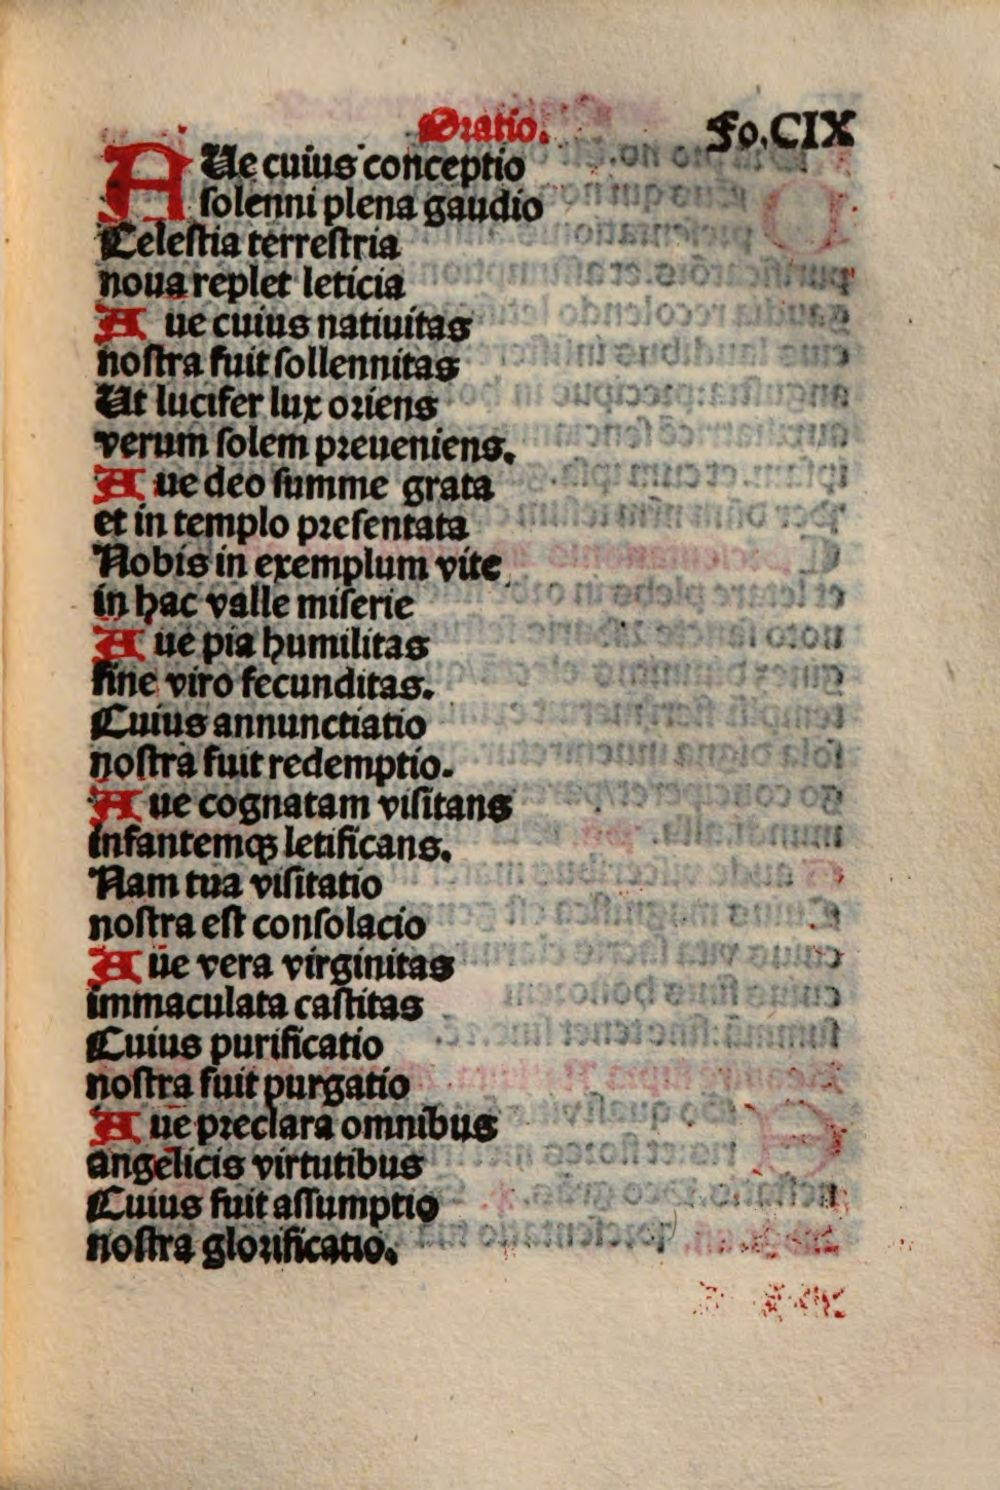 Oratio. Fo.CIX
AUe cuius conceptio
ſolenni plena gaudio
Celeſtia terreſtria
noua replet leticia
Aue cuius natiuitas
noſtra fuit ſollennitas
Ut lucifer lux oꝛiens
verum ſolem pꝛeueniens.
Aue deo ſumme grata
et in templo pꝛeſentata
Nobis in exemplum vite
in hac valle miſerie
Aue pia humilitas
ſine viro fecunditas.
Cuius annunctiatio
noſtra fuit redemptio.
Aue cognatam viſitans
infantemqꝫ letificans.
Nam tua viſitatio
noſtra eſt conſolacio
Aue vera virginitas
immaculata caſtitas
Cuius purificatio
noſtra fuit purgatio
Aue pꝛeclara omnibus
angelicis virtutibus
Cuius fuit aſſumptio
noſtra gloꝛificatio.